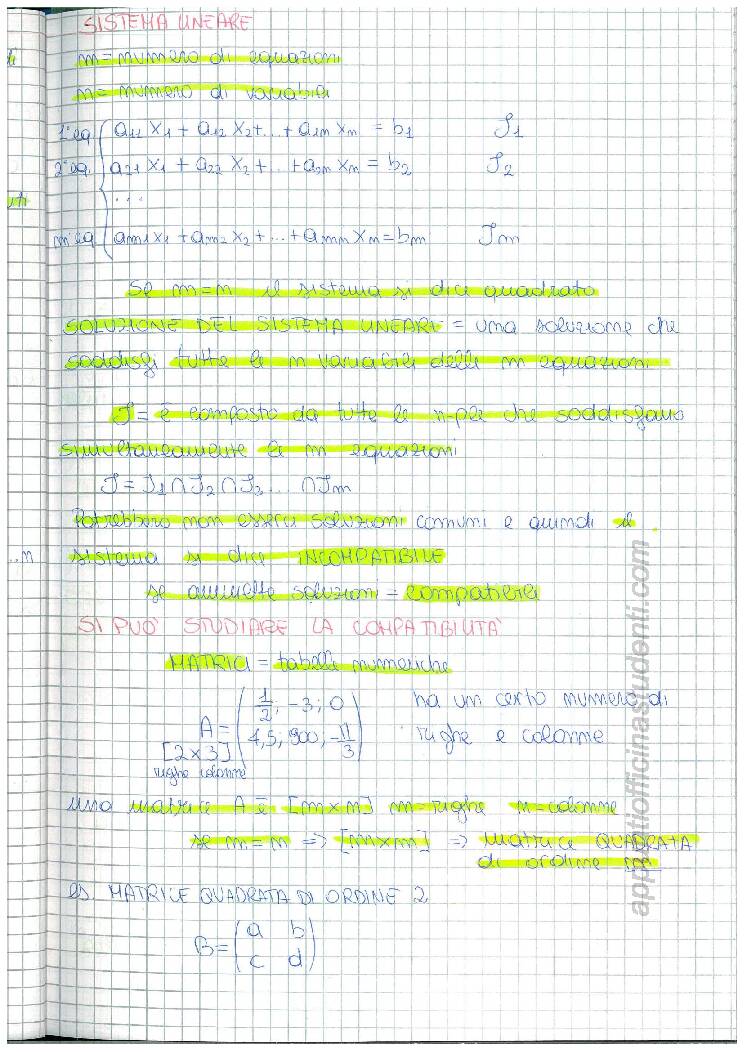 SISTEMA LINEARE
m = numero di equazioni
n = numero di variabili
1ª eq { a11 x1 + a12 x2 + ... + a1n xn = b1 S1
2ª eq. a21 x1 + a22 x2 + ... + a2n xn = b2 S2
...
mª eq am1 x1 + am2 x2 + ... + amn xn = bm Sm
Se m = n il sistema si dice quadrato
SOLUZIONE DEL SISTEMA LINEARE = una soluzione che
soddisfi tutte le n variabili delle m equazioni
S = è composto da tutte le n-ple che soddisfano
simultaneamente le m equazioni
S = S1 ∩ S2 ∩ S3 ... ∩ Sm
Potrebbero non esserci soluzioni comuni e quindi il
sistema si dice INCOMPATIBILE
se ammette soluzioni = compatibile
SI PUO' STUDIARE LA COMPATIBILITA'
MATRICI = tabelle numeriche
A = ( 1/2; -3; 0 ha un certo numero di
4,5; 900; -11/3 ) righe e colonne
[2 x 3]
righe colonne
una matrice A è [m x n] m = righe n = colonne
se m = n => [m x m] => matrice QUADRATA
di ordine m
es. MATRICE QUADRATA DI ORDINE 2
B = ( a b
c d )
appuntiofficinastudenti.com